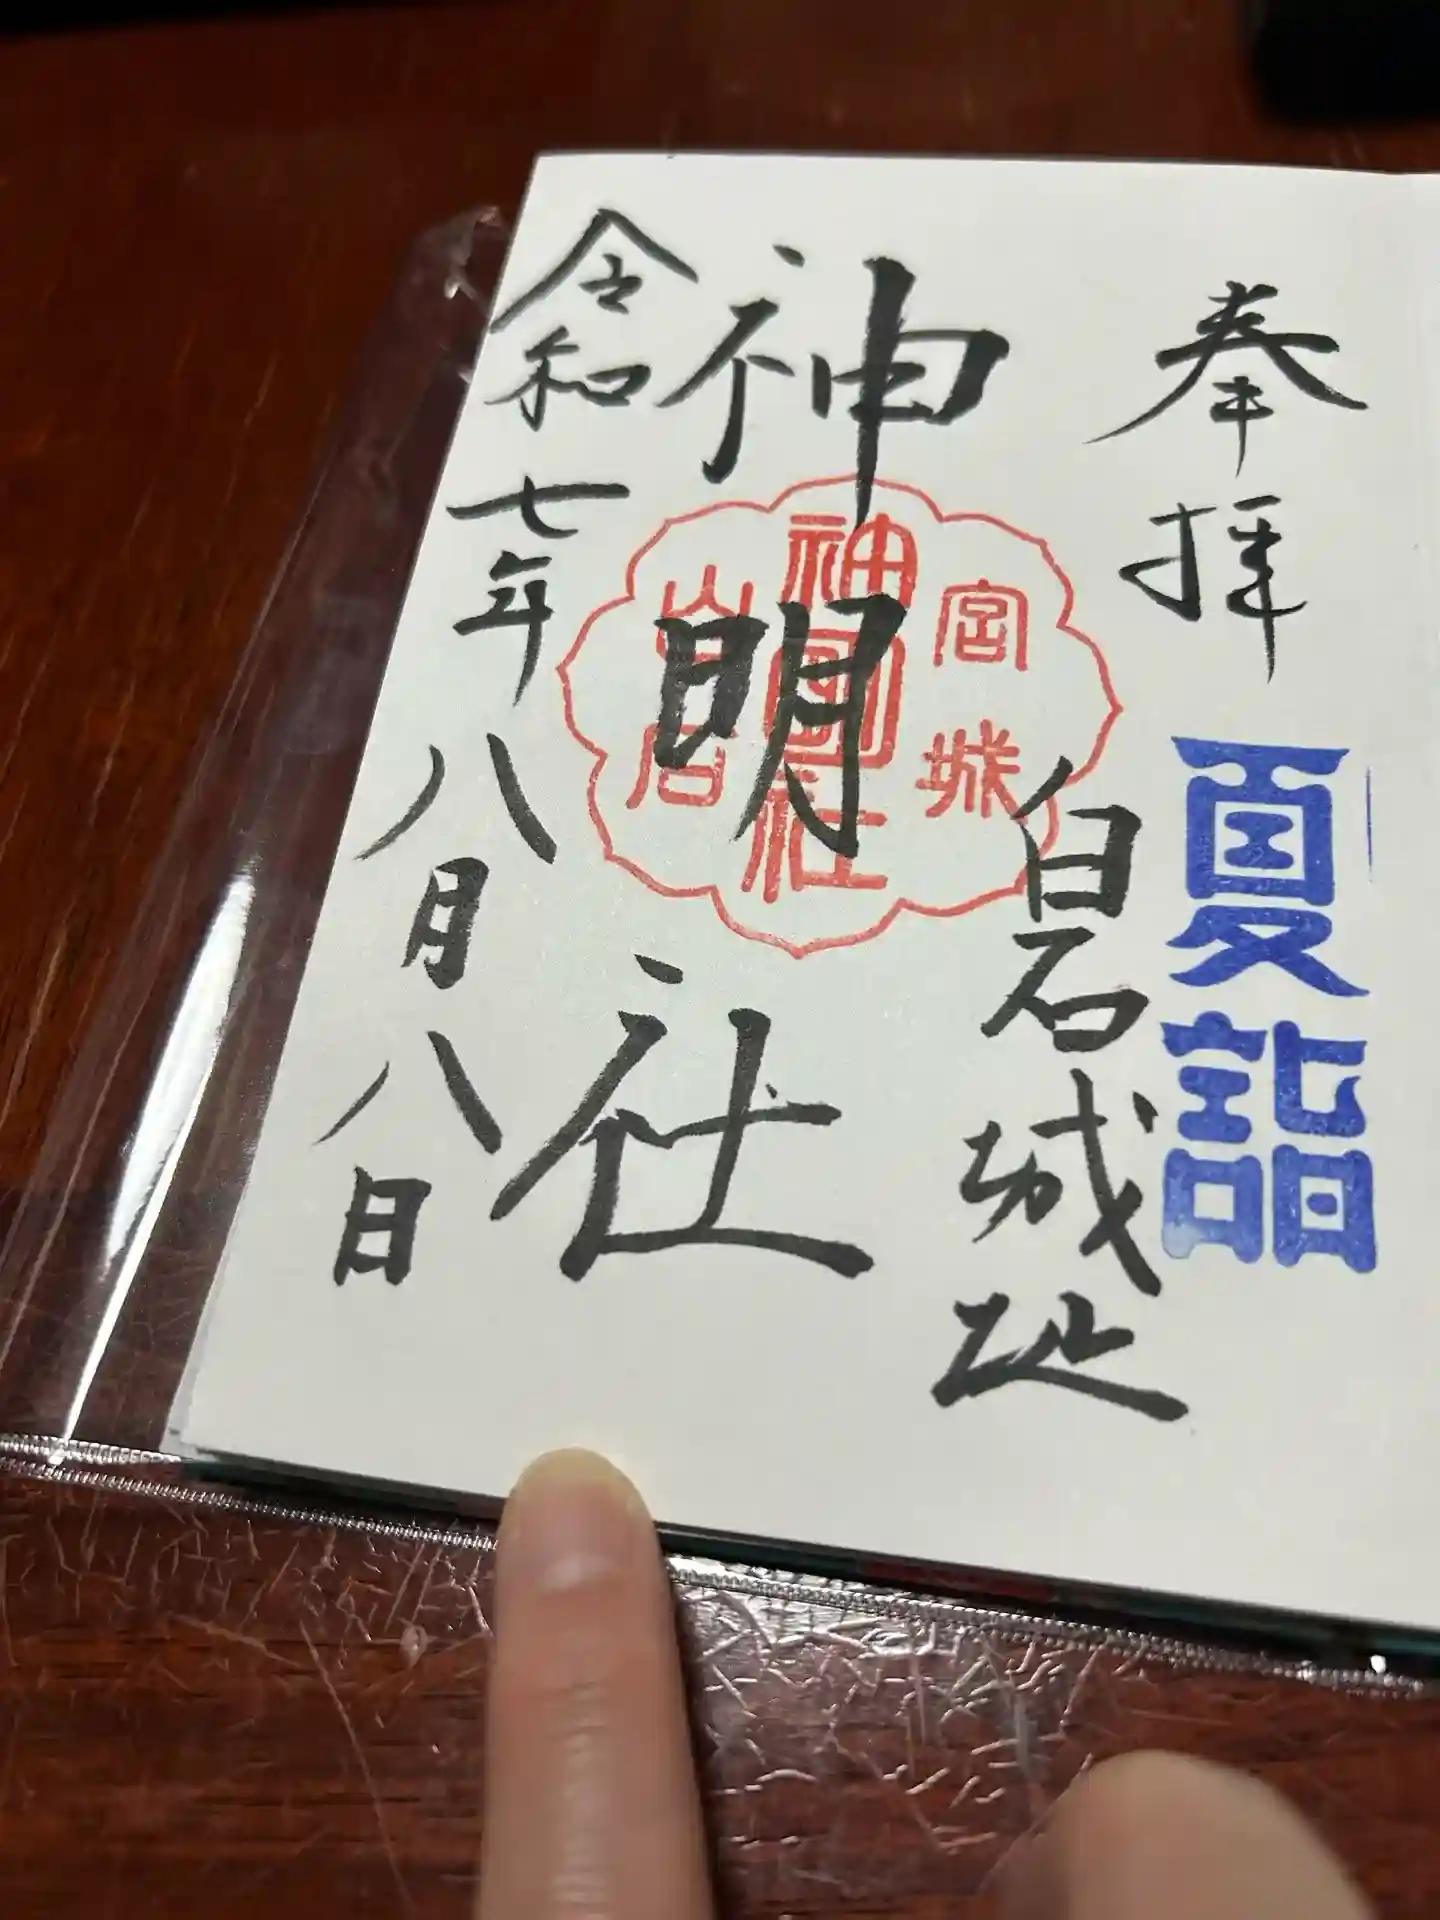 奉拝
夏詣
白石城址
神明社
令和七年八月八日
宮城
神明社
石